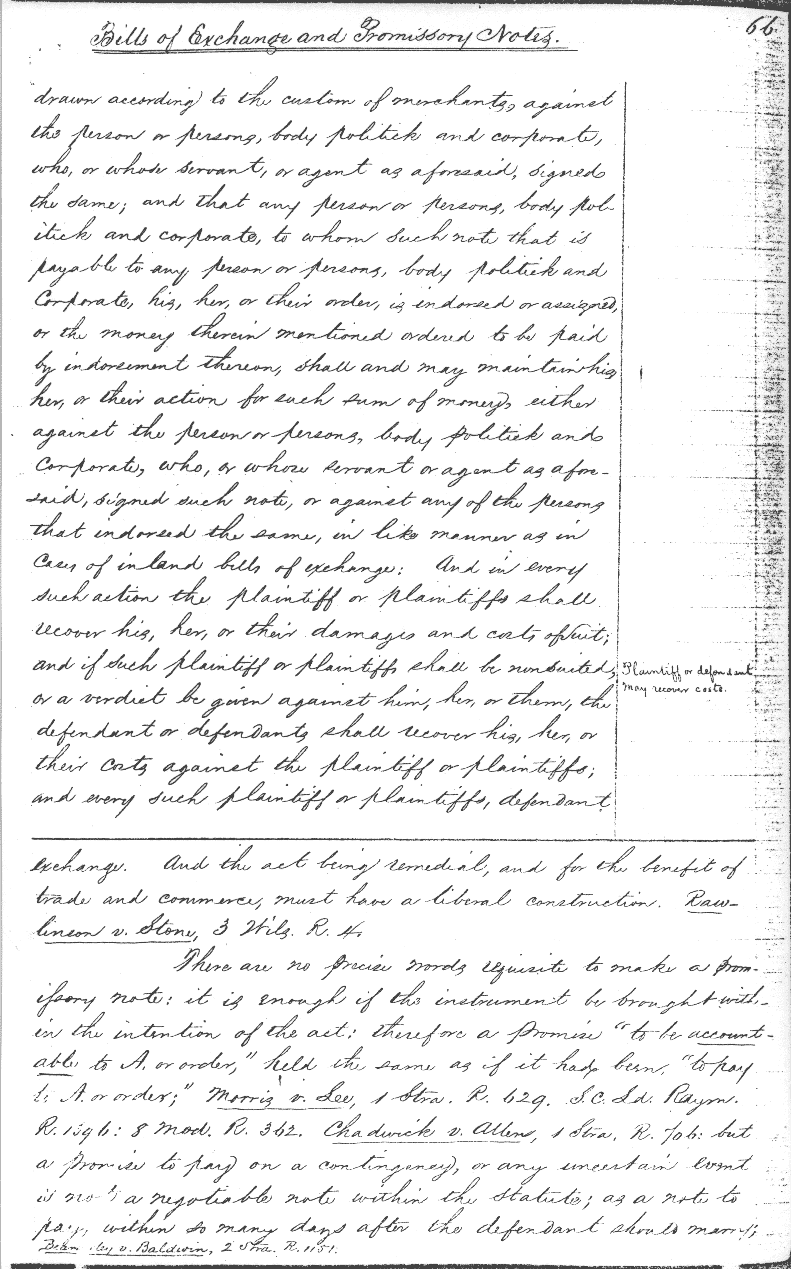 66
Bills of Exchange and Promissory Notes.
drawn according to the custom of merchants, against
the person or persons, body politick and corporate,
who, or whose servant, or agent as aforesaid, signed
the same; and that any person or persons, body pol-
itick and corporate, to whom such note that is
payable to any person or persons, body politick and
Corporate, his, her, or their order, is indorsed or assigned,
or the money therein mentioned ordered to be paid
by indorsement thereon, shall and may maintain his,
her, or their action for such sum of money, either
against the person or persons, body politick and
Corporate, who, or whose servant or agent as afore-
said, signed such note, or against any of the persons
that indorsed the same, in like manner as in
Cases of inland bills of exchange: And in every
such action the plaintiff or plaintiffs shall
recover his, her, or their damages and costs of suit;
and if such plaintiff or plaintiffs shall be nonsuited,
or a verdict be given against him, her, or them, the
defendant or defendants shall recover his, her, or
their costs against the plaintiff or plaintiffs;
and every such plaintiff or plaintiffs, defendant
Plaintiff or defendant
may recover costs.
exchange. And the act being remedial, and for the benefit of
trade and commerce, must have a liberal construction. Raw-
linson v. Stone, 3 Wils. R. 4.
There are no precise words requisite to make a prom-
issory note: it is enough if the instrument be brought with-
in the intention of the act: therefore a promise "to be account-
able to A. or order," held the same as if it had been, "to pay
to A. or order;" Morris v. Lee, 1 Stra. R. 629. S.C. Ld. Raym.
R. 1396: 8 Mod. R. 362. Chadwick v. Allen, 1 Stra. R. 706: but
a promise to pay on a contingency, or any uncertain event
is not a negotiable note within the statute; as a note to
pay, within so many days after the defendant should marry;
v. Baldwin, 2 Stra. R. 1151.